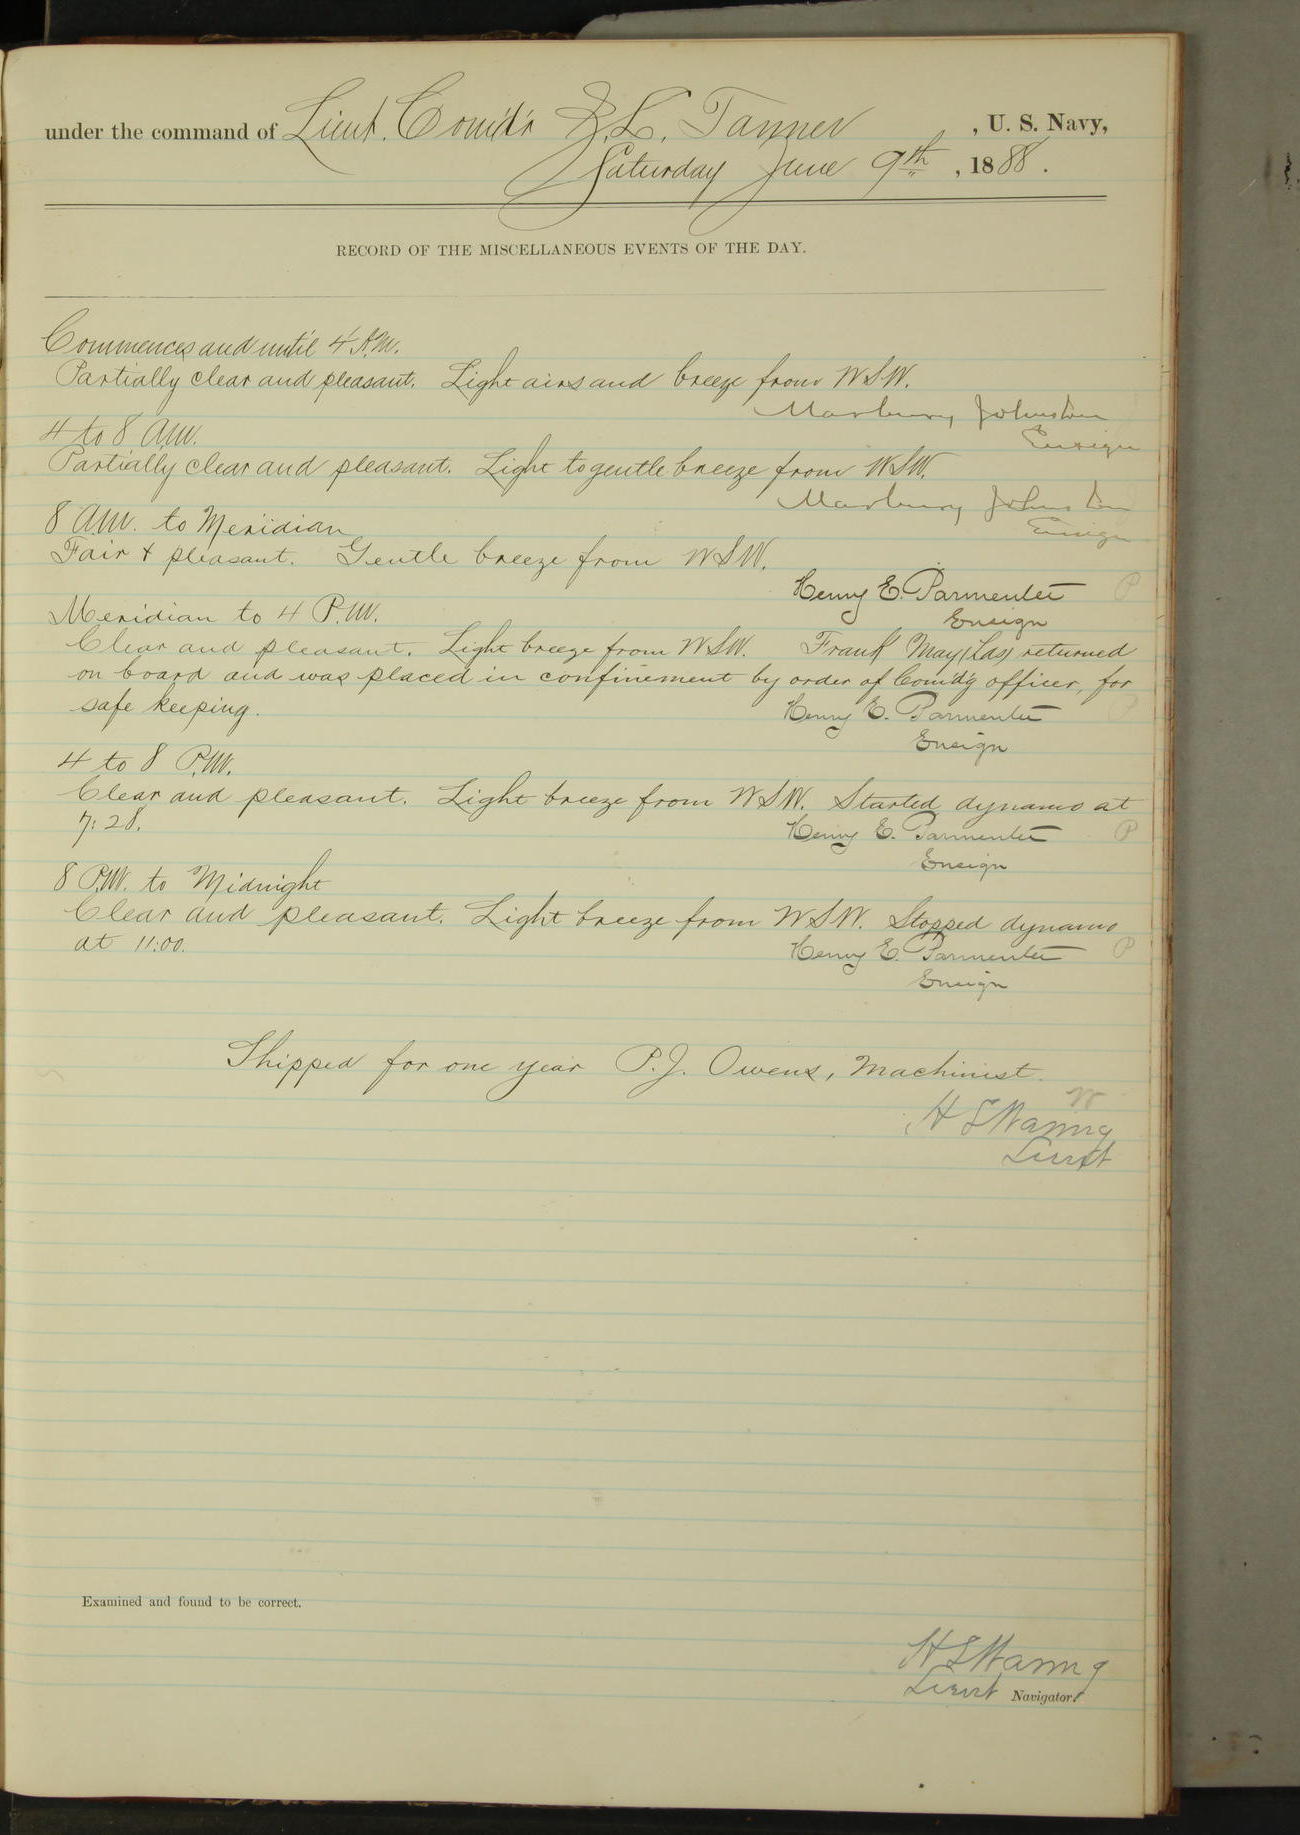 under the command of Lieut. Comd'r Z. L. Tanner, U. S. Navy,
Saturday June 9th, 1888.
RECORD OF THE MISCELLANEOUS EVENTS OF THE DAY.
Commences and until 4 A.M.
Partially clear and pleasant. Light airs and breeze from WSW.
Marbury Johnston
Ensign
4 to 8 A.M.
Partially clear and pleasant. Light to gentle breeze from WSW.
Marbury Johnston
Ensign
8 A.M. to Meridian
Fair & pleasant. Gentle breeze from WSW.
Henry E. Parmenter P
Ensign
Meridian to 4 P.M.
Clear and pleasant. Light breeze from WSW. Frank May (Lds) returned
on board and was placed in confinement by order of Comd'g officer, for
safe keeping.
Henry E. Parmenter P
Ensign
4 to 8 P.M.
Clear and pleasant. Light breeze from WSW. Started dynamo at
7:28.
Henry E. Parmenter P
Ensign
8 P.M. to Midnight
Clear and pleasant. Light breeze from WSW. Stopped dynamo
at 11:00.
Henry E. Parmenter P
Ensign
Shipped for one year P.J. Owens, Machinist.
W
H S Waring
Lieut
Examined and found to be correct.
H S Waring
Lieut Navigator.